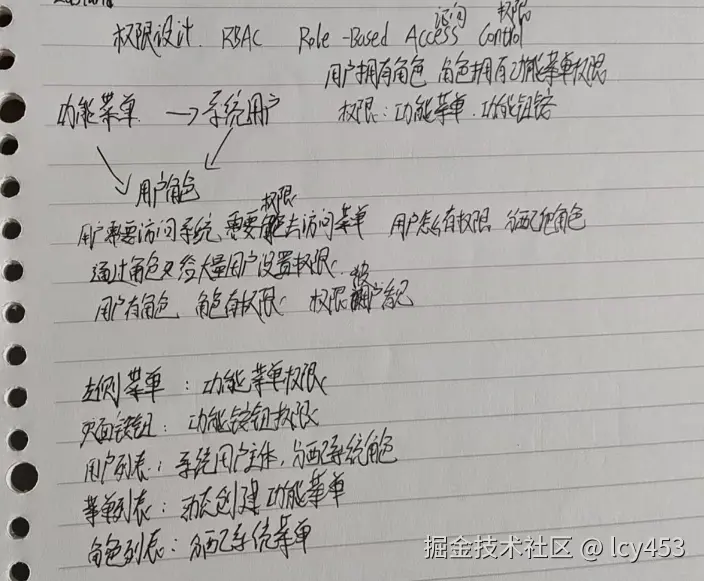 访问 权限
权限设计 RBAC Role-Based Access Control
用户拥有角色 角色拥有功能菜单权限
功能菜单 → 系统用户 权限:功能菜单、功能钮
用户角色
权限
用户需要访问系统 需要去访问菜单 用户怎么有权限 分配他角色
通过角色给大量用户设置权限
用户有角色 角色有权限 权限用户
左侧菜单:功能菜单权限
页面按钮:功能按钮权限
用户列表:系统用户主体,分配系统角色
菜单列表:动态创建功能菜单
角色列表:分配系统菜单
掘金技术社区 @ lcy453